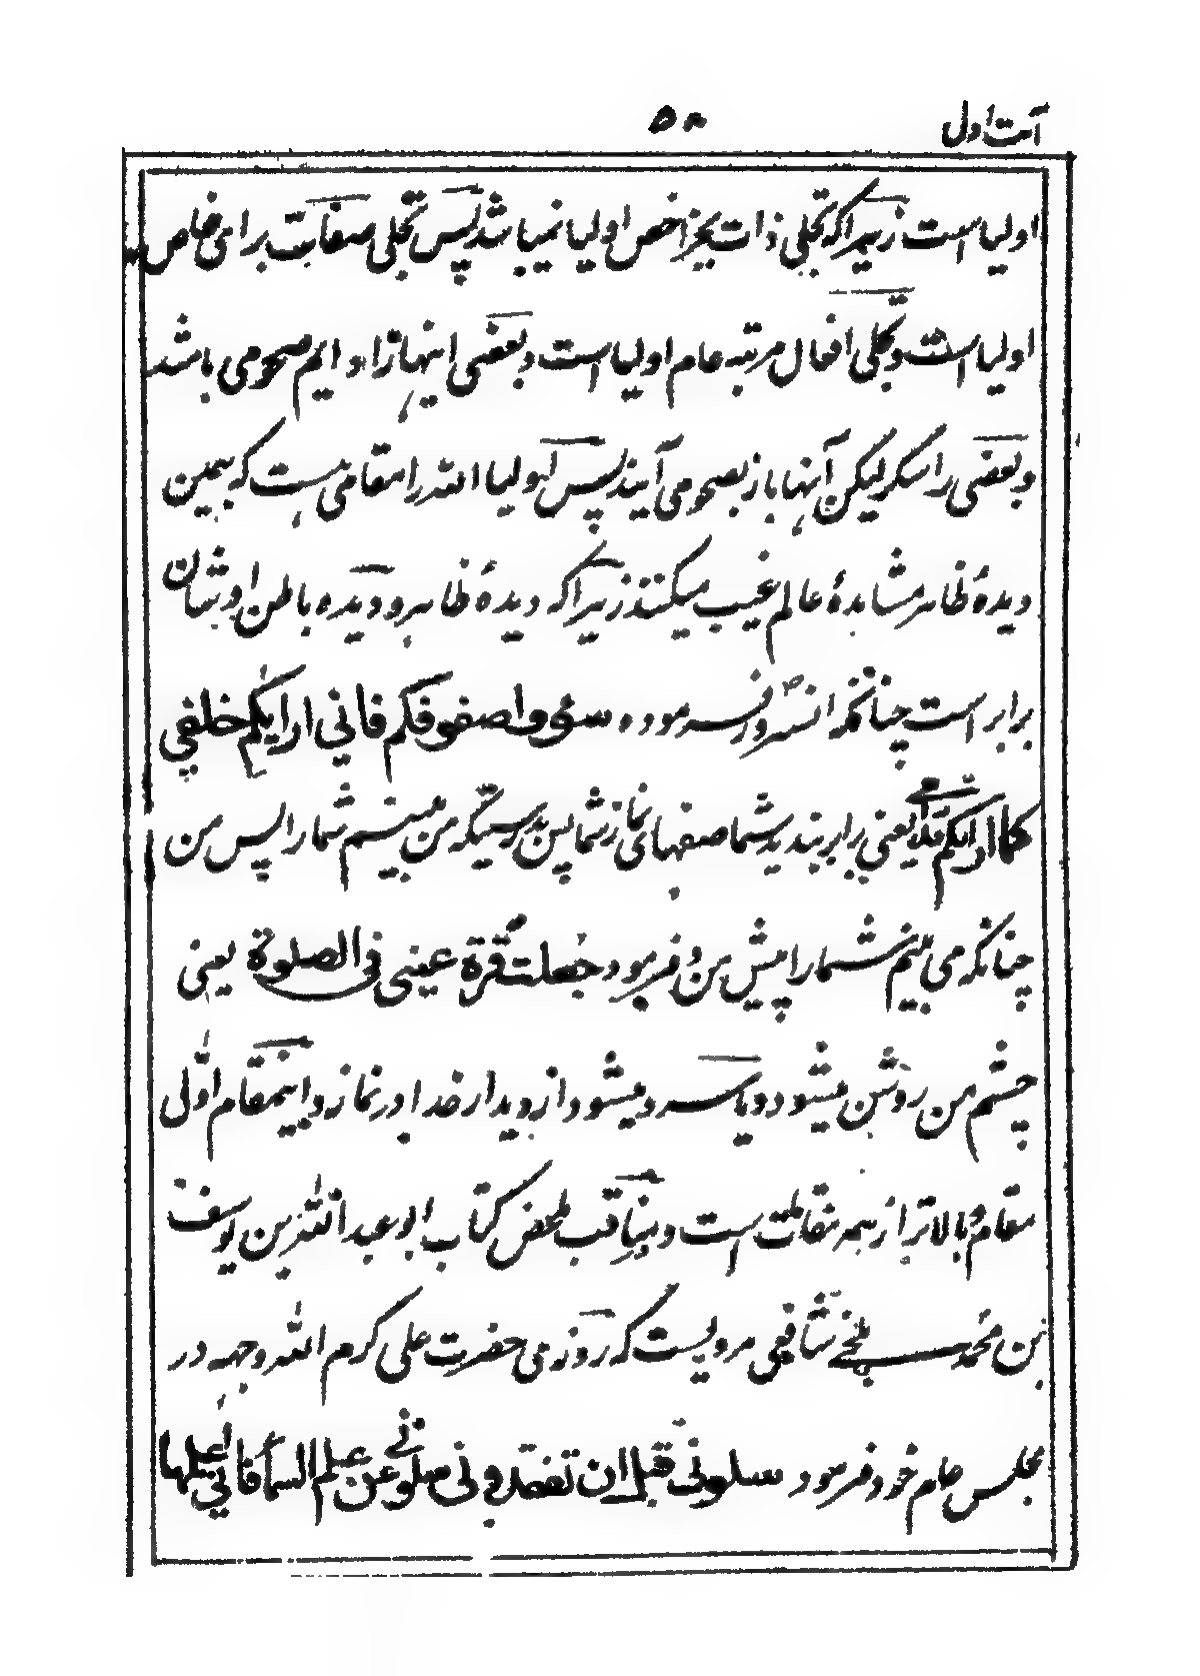 آیت اول ۵۰
اولیا است زیراکه تجلی ذات بجز اخص اولیا نمیباشد پس تجلی صفات برای خاص
اولیا است وتجلی افعال مرتبه عام اولیا است وبعضی اینها را دایم صحو می باشد
وبعضی را سکر لیکن آنها باز بصحو می آیند پس اولیا الله را مقامی است که بهمین
دیدهٔ ظاهر مشاهدهٔ عالم غیب میکنند زیراکه دیدهٔ ظاهر و دیده باطن اوشان
برابر است چنانکه انسرور فرموده سوو اصفوفکم فانی اراکم خلفی
کما اراکم یعنی برابر بندید شما صفهای نماز شما بدرستیکه من می بینم شما را پس من
چنانکه می بینم شما را پیش من و فرمود جعلت قرة عینی فی الصلوة یعنی
چشم من روشن میشود ویا سرد میشود از دیدار خدا در نماز واینمقام اولی
مقام و بالاتر از همه مقامات است وبمناقب کتاب ابو عبد الله بن یوسف
بن محمد بلخی شافعی مرویست که روزی حضرت علی کرم الله وجهه در
مجلس عام خود فرمود سلونی قبل ان تفقدونی سلونی عن علم السما فانی اعلمها